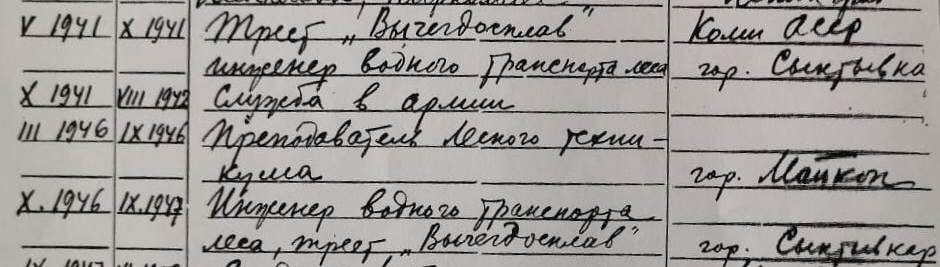 V 1941 X 1941 Трест „Вычегдосплав" Коми АССР
инженер водного транспорта леса гор. Сыктывка
X 1941 VIII 1942 Служба в армии
III 1946 IX 1946 Преподаватель лесного техни-
кума гор. Майкоп
X. 1946 IX.1947 Инженер водного транспорта
леса, трест „Вычегдосплав" гор. Сыктывкар